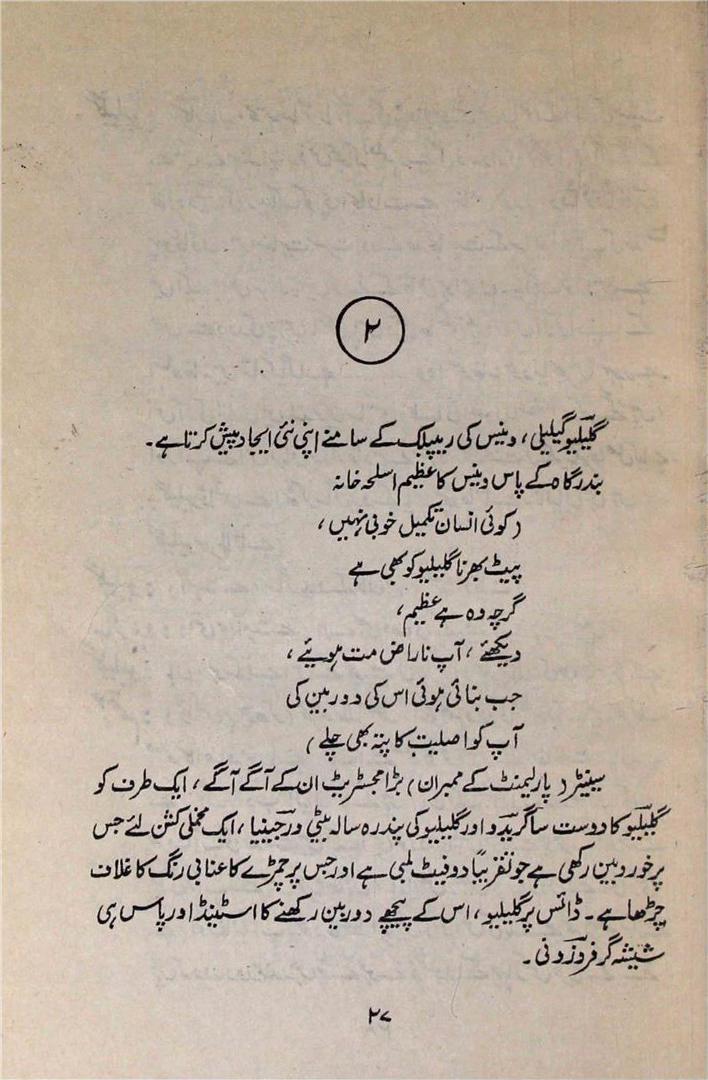 ۲
گلیلیو گیلیلی، وینس کی ریپبلک کے سامنے اپنی نئی ایجاد پیش کرتا ہے۔
بندرگاہ کے پاس وینس کا عظیم اسلحہ خانہ
(کوئی انسان تکمیل خوبی نہیں،
پیٹ بھرنا گلیلیو کو بھی ہے
گرچہ وہ ہے عظیم،
دیکھئے، آپ ناراض مت ہوئیے،
جب بنائی ہوئی اس کی دوربین کی
آپ کو اصلیت کا پتہ بھی چلے)
سینیٹر (پارلیمنٹ کے ممبران) بڑا مجسٹریٹ ان کے آگے آگے، ایک طرف کو
گلیلیو کا دوست ساگریدو اور گلیلیو کی پندرہ سالہ بیٹی ورجینیا، ایک مخملی کشن لئے جس
پر خوردبین رکھی ہے جو تقریباً دو فیٹ لمبی ہے اور جس پر چمڑے کا عنابی رنگ کا غلاف
چڑھا ہے۔ ڈائس پر گلیلیو، اس کے پیچھے دوربین رکھنے کا اسٹینڈ اور پاس ہی
شیشہ گر فروزونی۔
۲۷